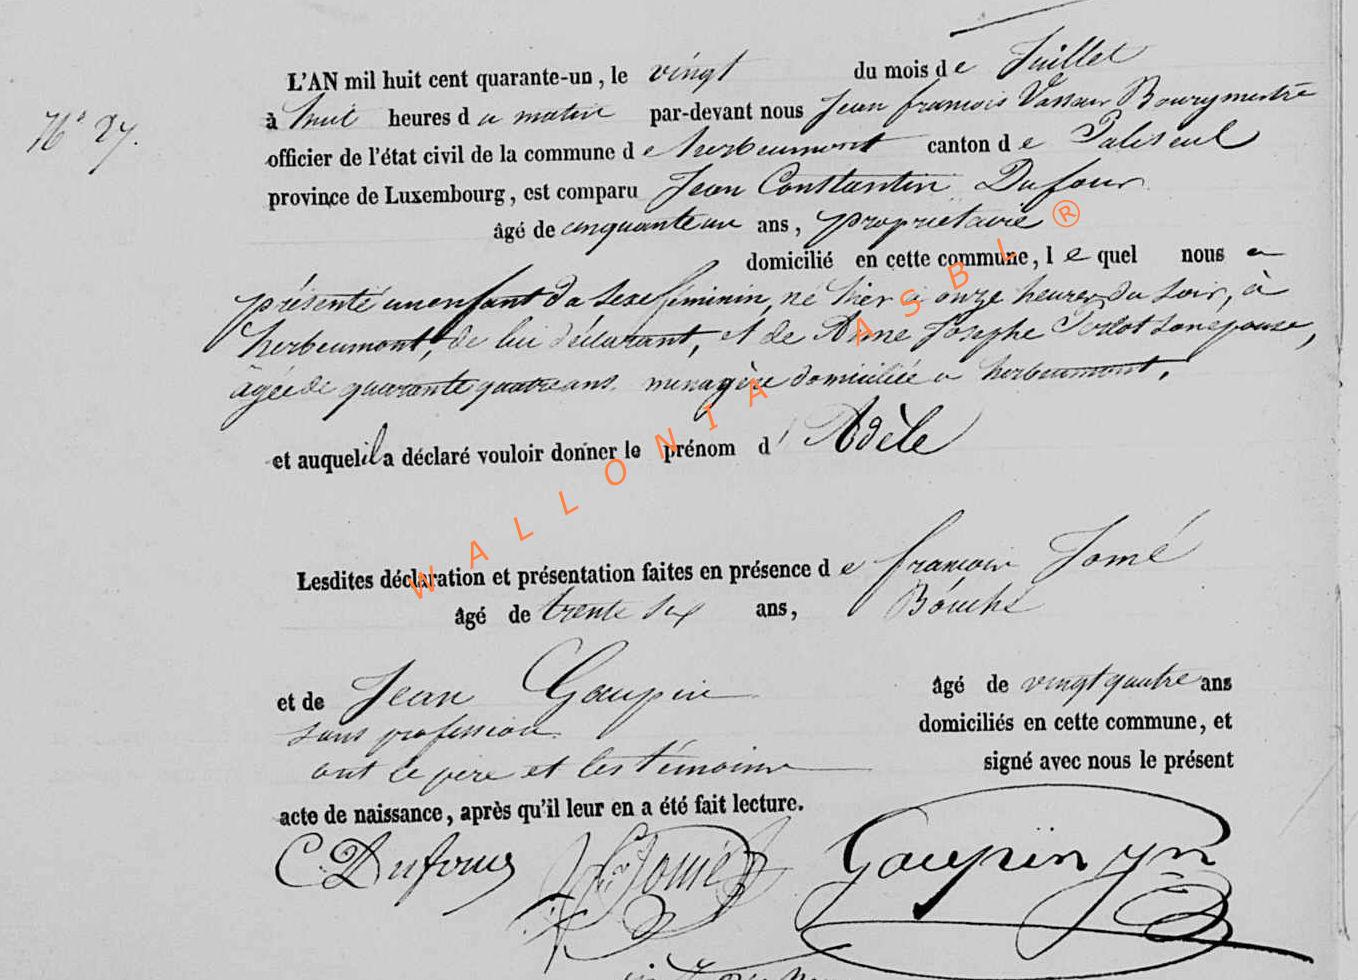 N° 27.
L'AN mil huit cent quarante-un, le vingt du mois de Juillet
à huit heures du matin par-devant nous Jean françois Bourgmestre
officier de l'état civil de la commune de herbeumont canton de Paliseul
province de Luxembourg, est comparu Jean Constantin Dufour
âgé de cinquante un ans, propriétaire
domicilié en cette commune, lequel nous a
présenté un enfant du sexe féminin, né hier à onze heures du soir, à
herbeumont, de lui déclarant, et de Anne Josephe Perlot son épouse,
âgée de quarante quatre ans. menagère domiciliée a herbeumont,
et auquel il a déclaré vouloir donner le prénom d' Adèle
Lesdites déclaration et présentation faites en présence de françois Jomé
âgé de trente six ans,
et de Jean Goupin âgé de vingt quatre ans
sans profession domiciliés en cette commune, et
ont le père et les témoins signé avec nous le présent
acte de naissance, après qu'il leur en a été fait lecture.
C. Dufour Jomé Goupin jn
WALLONIA ASBL ®